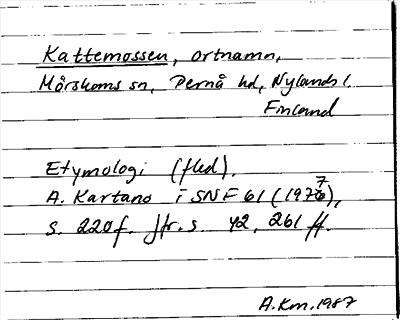 Kattemossen, ortnamn,
Mörskoms sn, Pernå hd, Nylands l.
Finland
Etymologi (fled).
A. Kartano i SNF 61 (1977),
s. 220f. Jfr. s. 42, 261 ff.
A.Km.1987